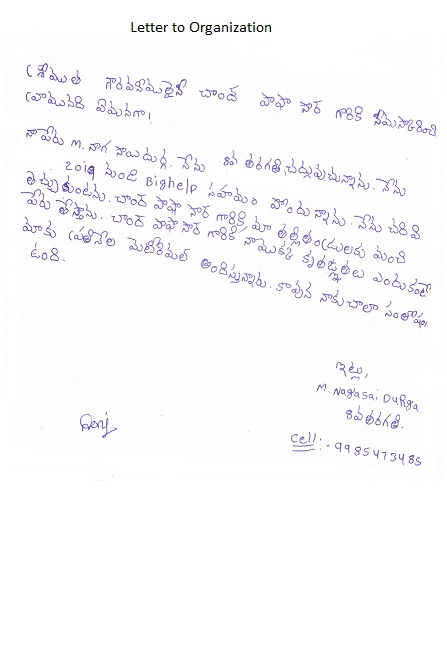 Letter to Organization
శ్రీముత గౌరవనీయులైన చాంద పాషా సార గారికి నమస్కరించి
వ్రాయునది ఏమనగా!
నా పేరు M. నాగ సాయిదుర్గ. నేను 8వ తరగతి చదువుచున్నాను. నేను
2019 నుండి Bighelp సహాయం పొందున్నాను. నేను చదివి
తెచ్చుకుంటాను. చాంద పాషా సార గారికి, మా తల్లితండ్రులకు మంచి
పేరు తెస్తాను. చాంద పాషా సార గారికి నాయొక్క కృతజ్ఞతలు ఎందుకంటే
మాకు ప్రతినెల మెటీరియల్ అందిస్తున్నారు. కావున నాకు చాలా సంతోషం
ఉంది.
ఇట్లు,
M. Nagasai Durga
8వ తరగతి.
Cell:- 9985473485